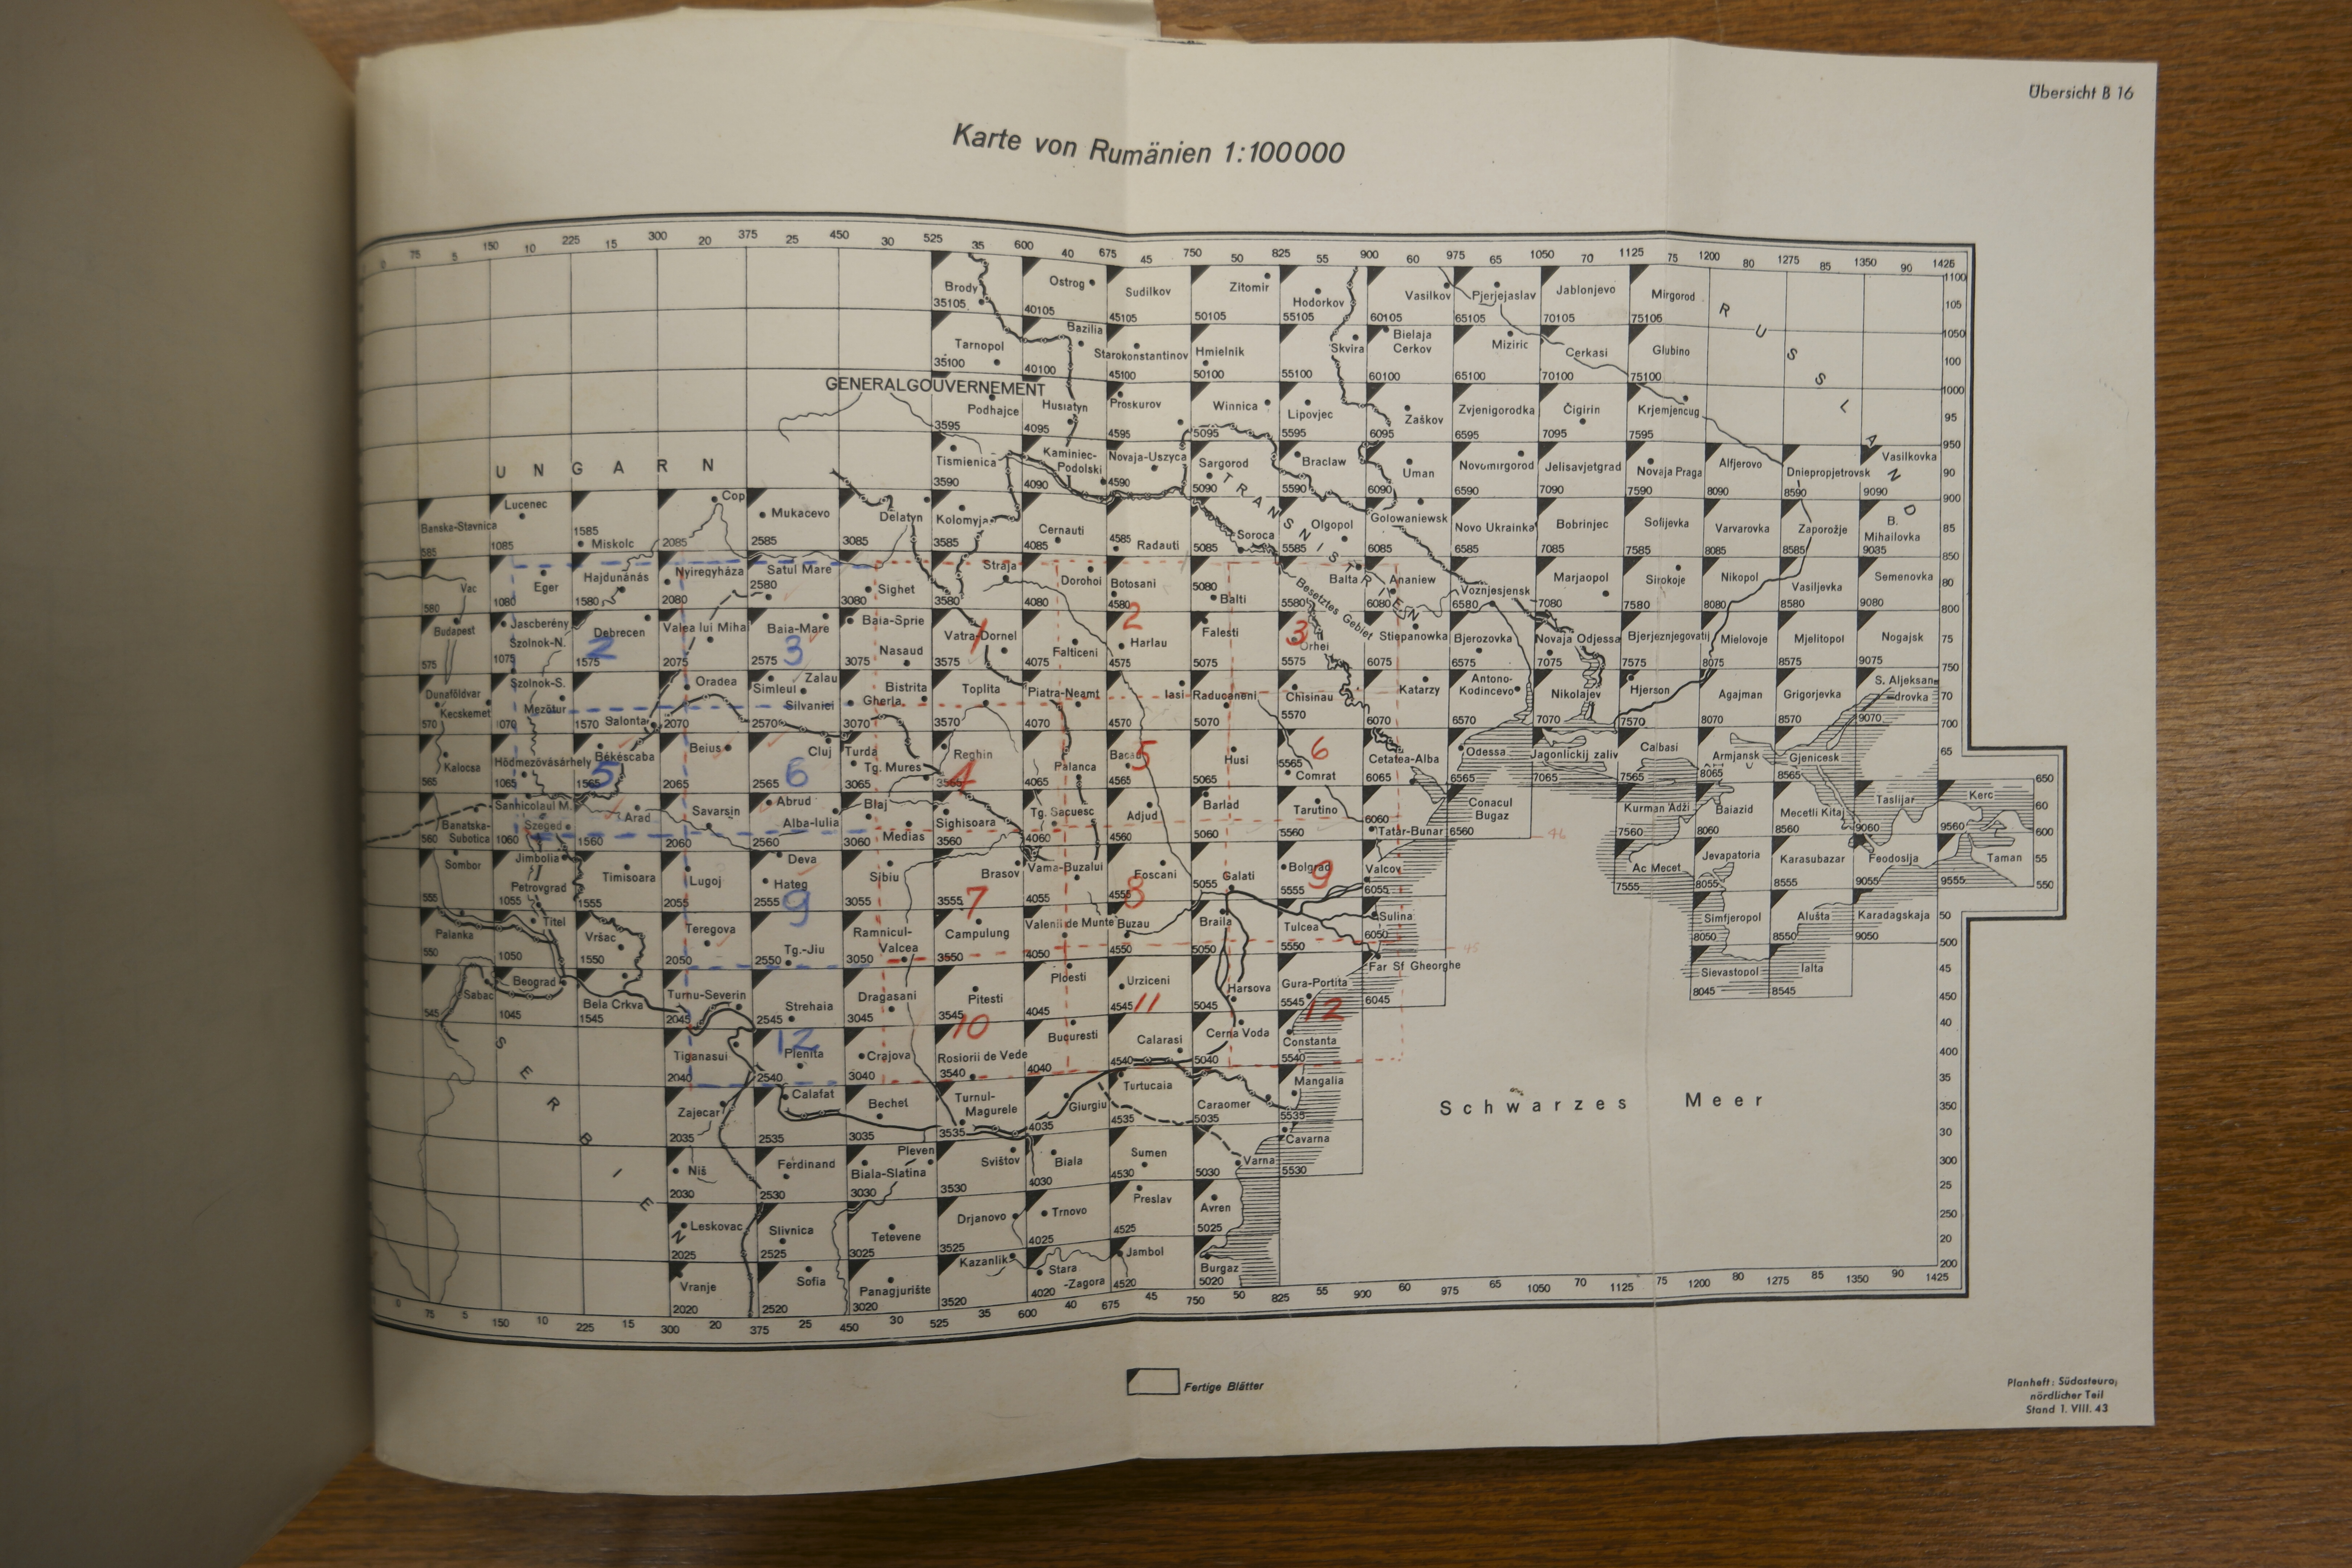 Übersicht B 16
Karte von Rumänien 1:100000
0 75 5 150 10 225 15 300 20 375 25 450 30 525 35 600 40 675 45 750 50 825 55 900 60 975 65 1050 70 1125 75 1200 80 1275 85 1350 90 1425
1100 105 1050 100 1000 95 950 90 900 85 850 80 800 75 750 70 700 65 650 60 600 55 550 50 500 45 450 40 400 35 350 30 300 25 250 20 200
Brody Ostrog Sudilkov Zitomir Hodorkov Vasilkov Pjerjejaslav Jablonjevo Mirgorod
35105 40105 45105 50105 55105 60105 65105 70105 75106
RUSSLAND
Tarnopol Bazilia Starokonstantinov Hmielnik Skvira Bielaja Cerkov Miziric Cerkasi Glubino
35100 40100 45100 50100 55100 60100 65100 70100 75100
GENERALGOUVERNEMENT
Podhajce Husiatyn Proskurov Winnica Lipovjec Zaškov Zvjenigorodka Čigirin Krjemjencug
3595 4095 4595 5095 5595 6095 6595 7095 7595
UNGARN
Tismienica Kaminiec-Podolski Novaja-Uszyca Sargorod Braclaw Uman Novomirgorod Jelisavjetgrad Novaja Praga Alfjerovo Dniepropjetrovsk Vasilkovka
3590 4090 4590 5090 5590 6090 6590 7090 7590 8090 8590 9090
TRANSNISTRIEN
Banska-Stavnica Lucenec Miskolc Cop Mukacevo Delatyn Kolomyja Cernauti Radauti Soroca Olgopol Golowaniewsk Novo Ukrainka Bobrinjec Sofijevka Varvarovka Zaporožje B. Mihailovka
585 1085 1585 2085 2585 3085 3585 4085 4585 5085 5585 6085 6585 7085 7585 8085 8585 9085
Vac Eger Hajdunánás Nyiregyháza Satul Mare Sighet Straja Dorohoi Botosani Balti Balta Ananiew Voznjesjensk Marjaopol Sirokoje Nikopol Vasiljevka Semenovka
580 1080 1580 2080 2580 3080 3580 4080 4580 5080 5580 6080 6580 7080 7580 8080 8580 9080
Besetztes Gebiet
Budapest Jascberény Szolnok-N. Debrecen Valea lui Miha Baia-Mare Baia-Sprie Nasaud Vatra-Dornei Falticeni Harlau Falesti Orhei Stiepanowka Bjerozovka Novaja Odjessa Bjerjeznjegovatij Mielovoje Mjelitopol Nogajsk
575 1075 1575 2075 2575 3075 3575 4075 4575 5075 5575 6075 6575 7075 7575 8075 8575 9075
2 3 1 2 3
Dunaföldvar Kecskemet Szolnok-S. Mezötur Salonta Oradea Simleul Silvaniei Zalau Bistrita Gherla Toplita Piatra-Neamt Iasi Raducaneni Chisinau Katarzy Antono-Kodincevo Nikolajev Hjerson Agajman Grigorjevka S. Aljeksandrovka
570 1070 1570 2070 2570 3070 3570 4070 4570 5070 5570 6070 6570 7070 7570 8070 8570 9070
Kalocsa Hódmezövásárhely Békéscaba Beius Cluj Turda Tg. Mures Reghin Palanca Bacau Husi Comrat Cetatea-Alba Odessa Jagonlickij zaliv Calbasi Armjansk Gjenicesk
565 1065 1565 2065 2565 3065 3565 4065 4565 5065 5565 6065 6565 7065 7565 8065 8565
5 6 4 5 6
Banatska-Subotica Sanhicolaul M. Szeged Arad Savarsin Abrud Alba-Iulia Blaj Medias Sighisoara Tg. Sacuesc Adjud Barlad Tarutino Tatar-Bunar Conacul Bugaz Kurman Adži Baiazid Mecetli Kitaj Taslijar Kerc
560 1060 1560 2060 2560 3060 3560 4060 4560 5060 5560 6060 6560 7560 8060 8560 9060 9560
46
Sombor Jimbolia Petrovgrad Timisoara Lugoj Deva Hateg Sibiu Brasov Vama-Buzalui Foscani Galati Bolgrad Valcov Ac Mecet Jevapatoria Karasubazar Feodosija Taman
555 1055 1555 2055 2555 3055 3555 4055 4555 5055 5555 6055 7555 8055 8555 9055 9555
9 7 8 9
Palanka Titel Vršac Teregova Tg.-Jiu Ramnicul-Valcea Campulung Valenii de Munte Buzau Braila Tulcea Sulina Simfjeropol Alušta Karadagskaja
550 1050 1550 2050 2550 3050 3550 4050 4550 5050 5550 6050 8050 8550 9050
45
Sabac Beograd Bela Crkva Turnu-Severin Strehaia Dragasani Pitesti Ploesti Urziceni Harsova Gura-Portita Far Sf Gheorghe Sievastopol Ialta
545 1045 1545 2045 2545 3045 3545 4045 4545 5045 5545 6045 8045 8545
12 10 11 12
SERBIEN
Tiganasui Plenita Crajova Rosiorii de Vede Bucuresti Calarasi Cerna Voda Constanta
2040 2540 3040 3540 4040 4540 5040 5540
Zajecar Calafat Bechet Turnul-Magurele Giurgiu Turtucaia Caraomer Mangalia
2035 2535 3035 3535 4035 4535 5035 5535
Schwarzes Meer
Niš Ferdinand Pleven Biala-Slatina Svištov Biala Sumen Varna Cavarna
2030 2530 3030 3530 4030 4530 5030 5530
Leskovac Slivnica Tetevene Drjanovo Trnovo Preslav Avren
2025 2525 3025 3525 4025 4525 5025
Vranje Sofia Panagjurište Kazanlik Stara-Zagora Jambol Burgaz
2020 2520 3020 3520 4020 4520 5020
0 75 5 150 10 225 15 300 20 375 25 450 30 525 35 600 40 675 45 750 50 825 55 900 60 975 65 1050 70 1125 75 1200 80 1275 85 1350 90 1425
Fertige Blätter
Planheft: Südosteuro,
nördlicher Teil
Stand 1. VIII. 43